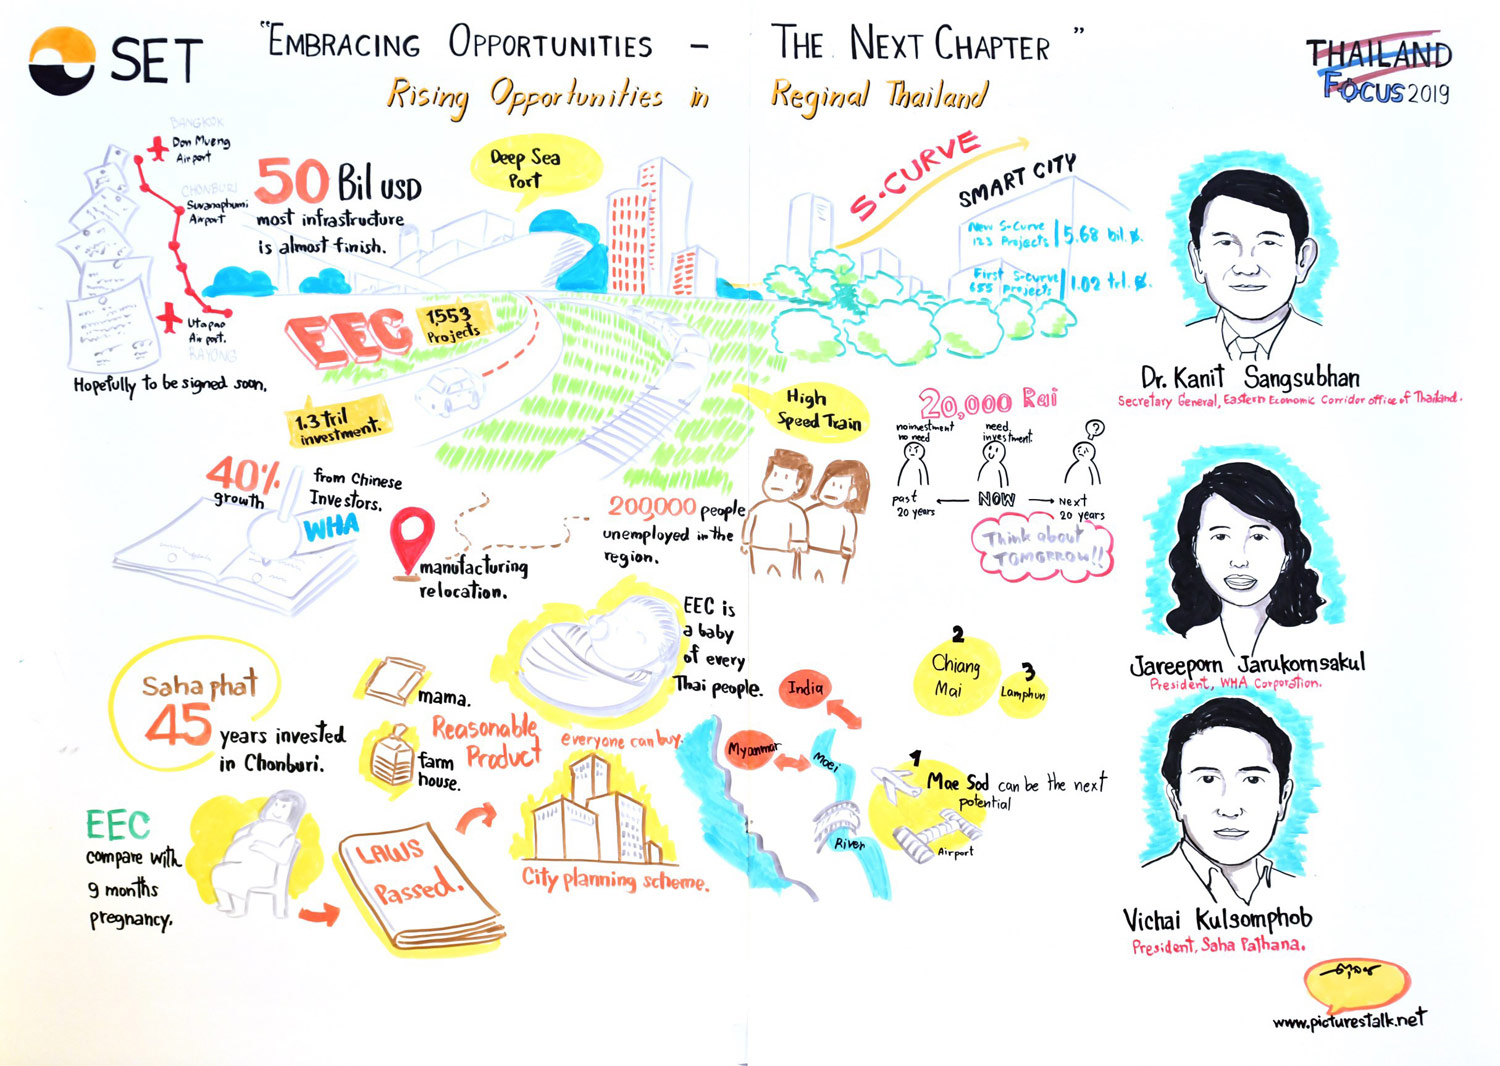 SET
"EMBRACING OPPORTUNITIES – THE NEXT CHAPTER"
Rising Opportunities in Reginal Thailand
THAILAND
FOCUS 2019
BANGKOK
Don Mueng
Airport
CHONBURI
Suvanaphumi
Airport
Utapao
Airport.
RAYONG
Hopefully to be signed soon.
50 Bil USD
most infrastructure
is almost finish.
Deep Sea
Port
EEC
1,553
Projects
1.3 tril
investment.
S-CURVE
SMART CITY
New S-Curve
123 Projects
5.68 bil. ฿.
First S-curve
655 Projects
1.02 trl. ฿.
Dr. Kanit Sangsubhan
Secretary General, Eastern Economic Corridor office of Thailand.
40%
growth
from Chinese
Investors.
WHA
manufacturing
relocation.
High
Speed Train
200,000 people
unemployed in the
region.
20,000 Rai
no investment
no need
need
investment.
?
past
20 years
NOW
Next
20 years
Think about
TOMORROW!!
Jareeporn Jarukornsakul
President, WHA Corporation.
Saha phat
45 years invested
in Chonburi.
mama.
farm
house.
Reasonable
Product
everyone can buy.
EEC is
a baby
of every
Thai people.
India
Myanmar
Moei
River
2
Chiang
Mai
3
Lamphun
1
Mae Sod can be the next
potential
Airport
EEC
compare with
9 months
pregnancy.
LAWS
Passed.
City planning scheme.
Vichai Kulsomphob
President, Saha Pathana.
www.picturestalk.net